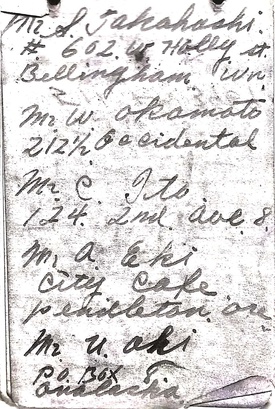 Mr. S Takahashi.
# 602 W Holly st.
Bellingham Wn.
Mr W. Okamoto
212½ Occidental
Mr C. Ito
124. 2nd. ave. S.
Mr. A Eki
City Cafe
Pendleton. ore
Mr. U. Oki
P.O. Box